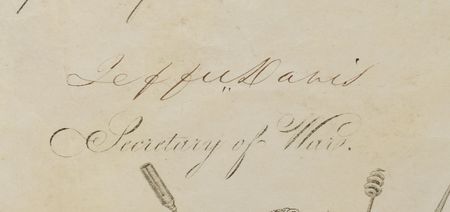 Jeffer Davis
Secretary of War.